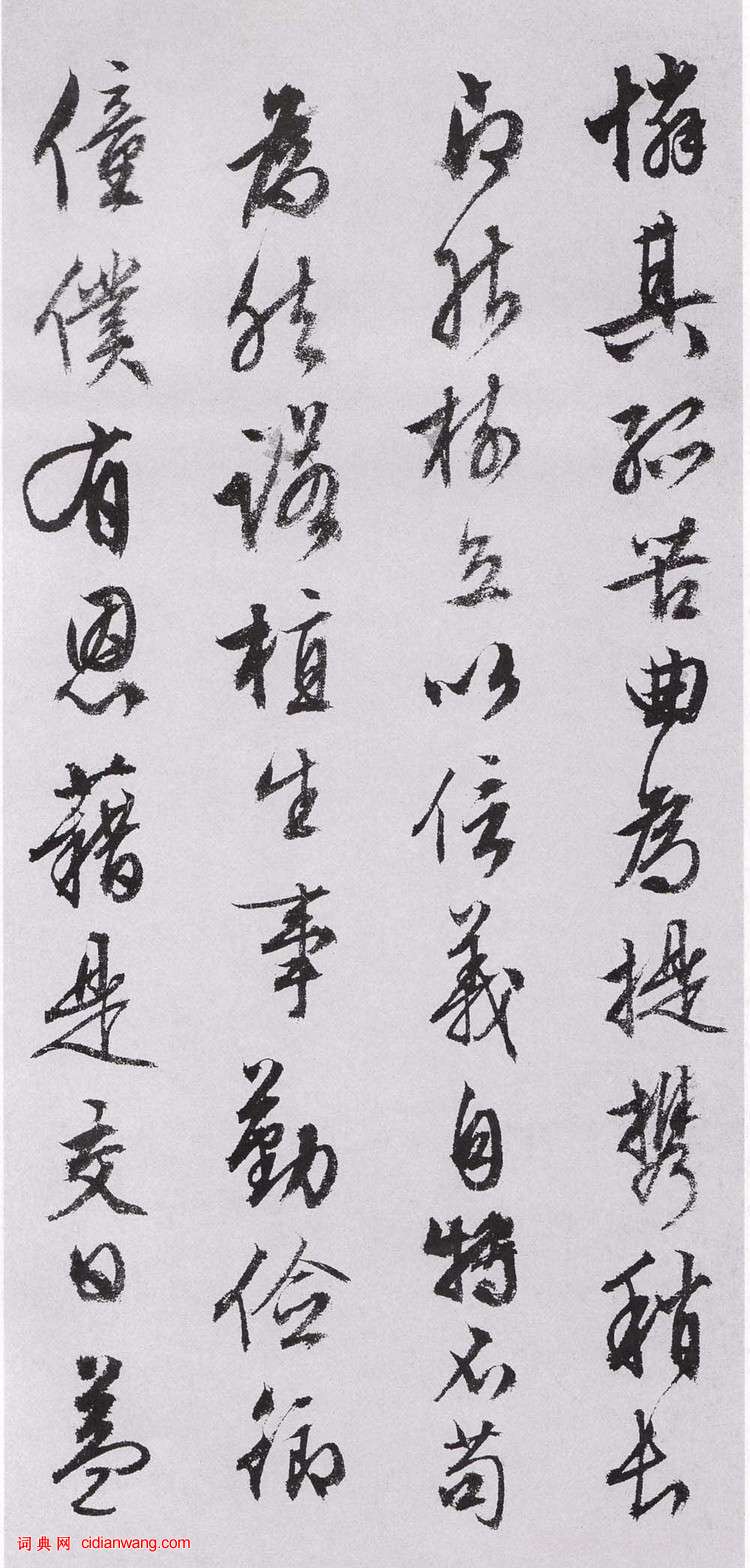 憐其孤苦曲為提携稍長
即能樹立以信義自持不苟
為然諾植生事勤儉御
僮僕有恩藉是交日益
词典网 cidianwang.com